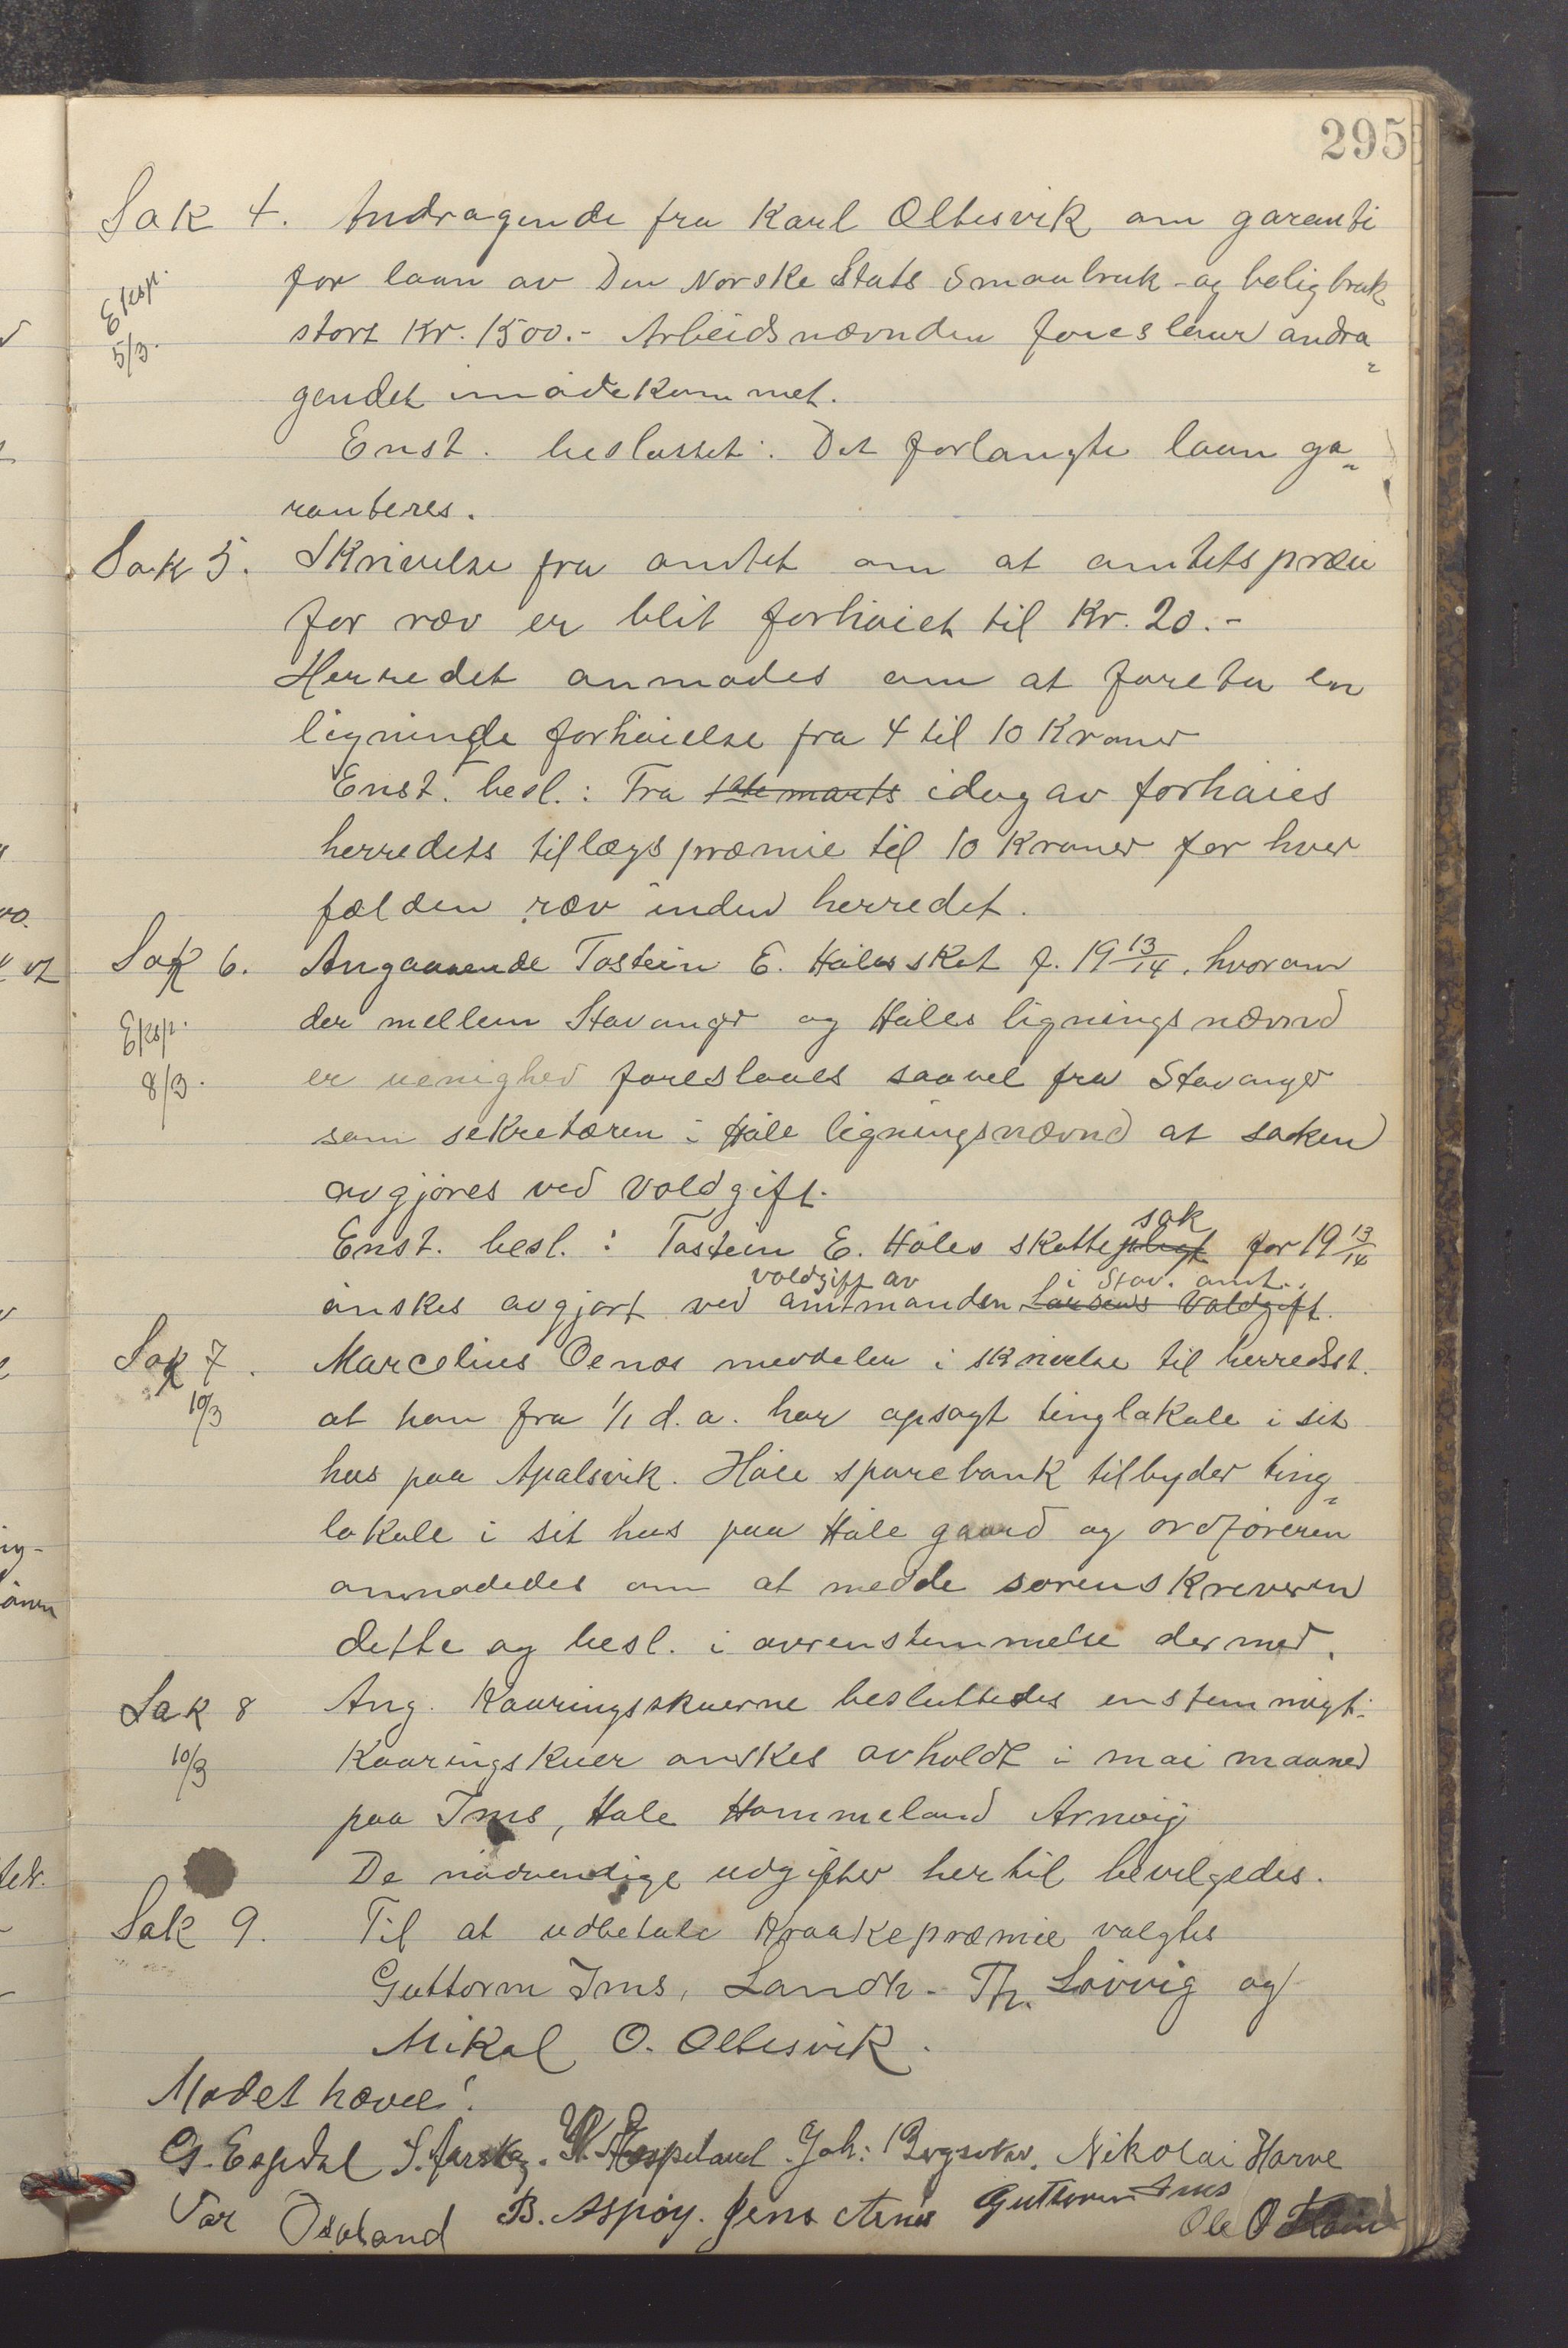 295
Sak 4. Andragende fra Karl Oltesvik om garanti
for laan av Den Norske Stats Smaabruk- og boligbank
Eksp.
stort Kr. 1500.- Arbeidsnævnden foreslaar andra
5/3.
gendet imødekommet.
Enst. besluttet: Det forlangte laan ga
ranteres.
Sak 5. Skrivelse fra amtet om at amtets præmie
for ræv er blit forhøiet til Kr. 20.-
Herredet anmodes om at foreta en
lignende forhøielse fra 4 til 10 Kroner
Enst. besl.: Fra 1ste marts idag av forhøies
herredets tillægspræmie til 10 Kroner for hver
fælden ræv inden herredet.
Sak 6. Angaaende Tostein E. Høles skat f. 19 13/14, hvorom
Eksp.
der mellem Stavanger og Høles ligningsnævnd
8/3.
er uenighed foreslaaes saavel fra Stavanger
som sekretæren i Høle ligningsnævnd at saken
avgjøres ved Voldgift.
sak
Enst. besl.: Tostein E. Høles skattepligt for 19 13/14
voldgift av i Stav. amt.
ønskes avgjort ved amtmanden Larsens Voldgift.
Sak 7. Marcelius Oenæs meddeler i skrivelse til herredsst.
10/3
at han fra 1/1 d.a. har opsagt tinglokale i sit
hus paa Apalsvik. Høle sparebank tilbyder ting
lokale i sit hus paa Høle gaard og ordføreren
anmodedes om at medde sorenskriveren
dette og besl. i overenstemmelse dermed.
Sak 8 Ang. Kaaringskuerne besluttedes enstemmigt:
10/3
Kaaringskuer ønskes avholdt i mai maaned
paa Ims, Høle Hommeland Arnvig
De nødvendige udgifter hertil bevilgedes.
Sak 9. Til at udbetale Kraakepræmie valgtes
Guttorm Ims, Landh. Th. Løvvig og
Mikal O. Oltesvik.
Mødet hævet!
G. Espdal S. Espeland. Joh: Nikolai Harve
Osaland B. Aspøy. Jens Guttorm Ims
Ole O